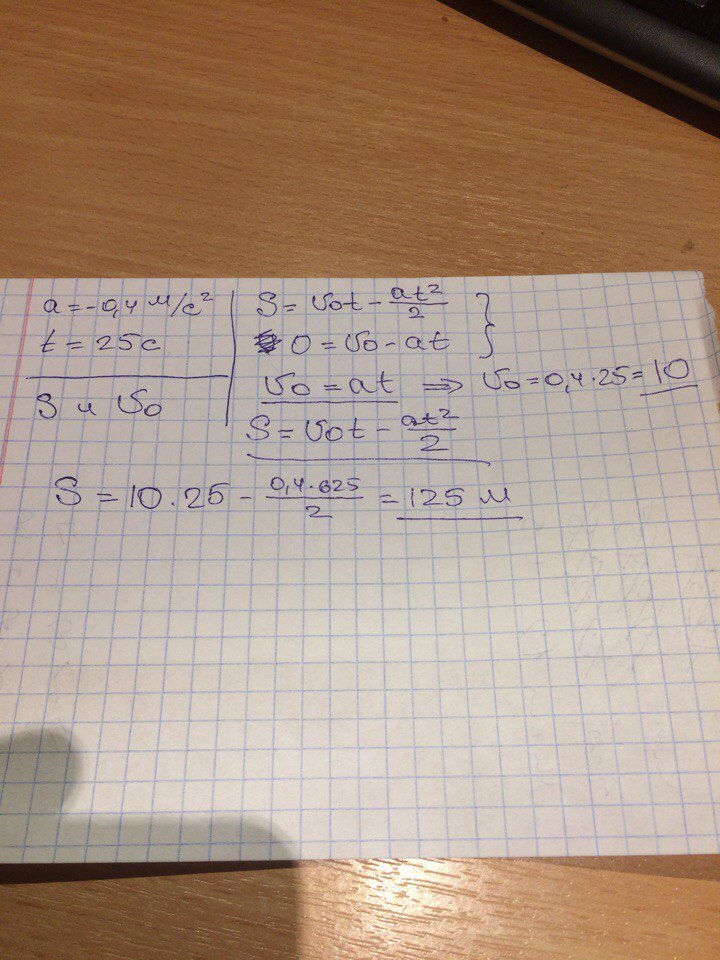 a = -0,4 м/с²
t = 25с
S и υ₀
S = υ₀t - at²/2
0 = υ₀ - at
υ₀ = at ⇒ υ₀ = 0,4 · 25 = 10
S = υ₀t - at²/2
S = 10 · 25 - 0,4 · 625/2 = 125 м